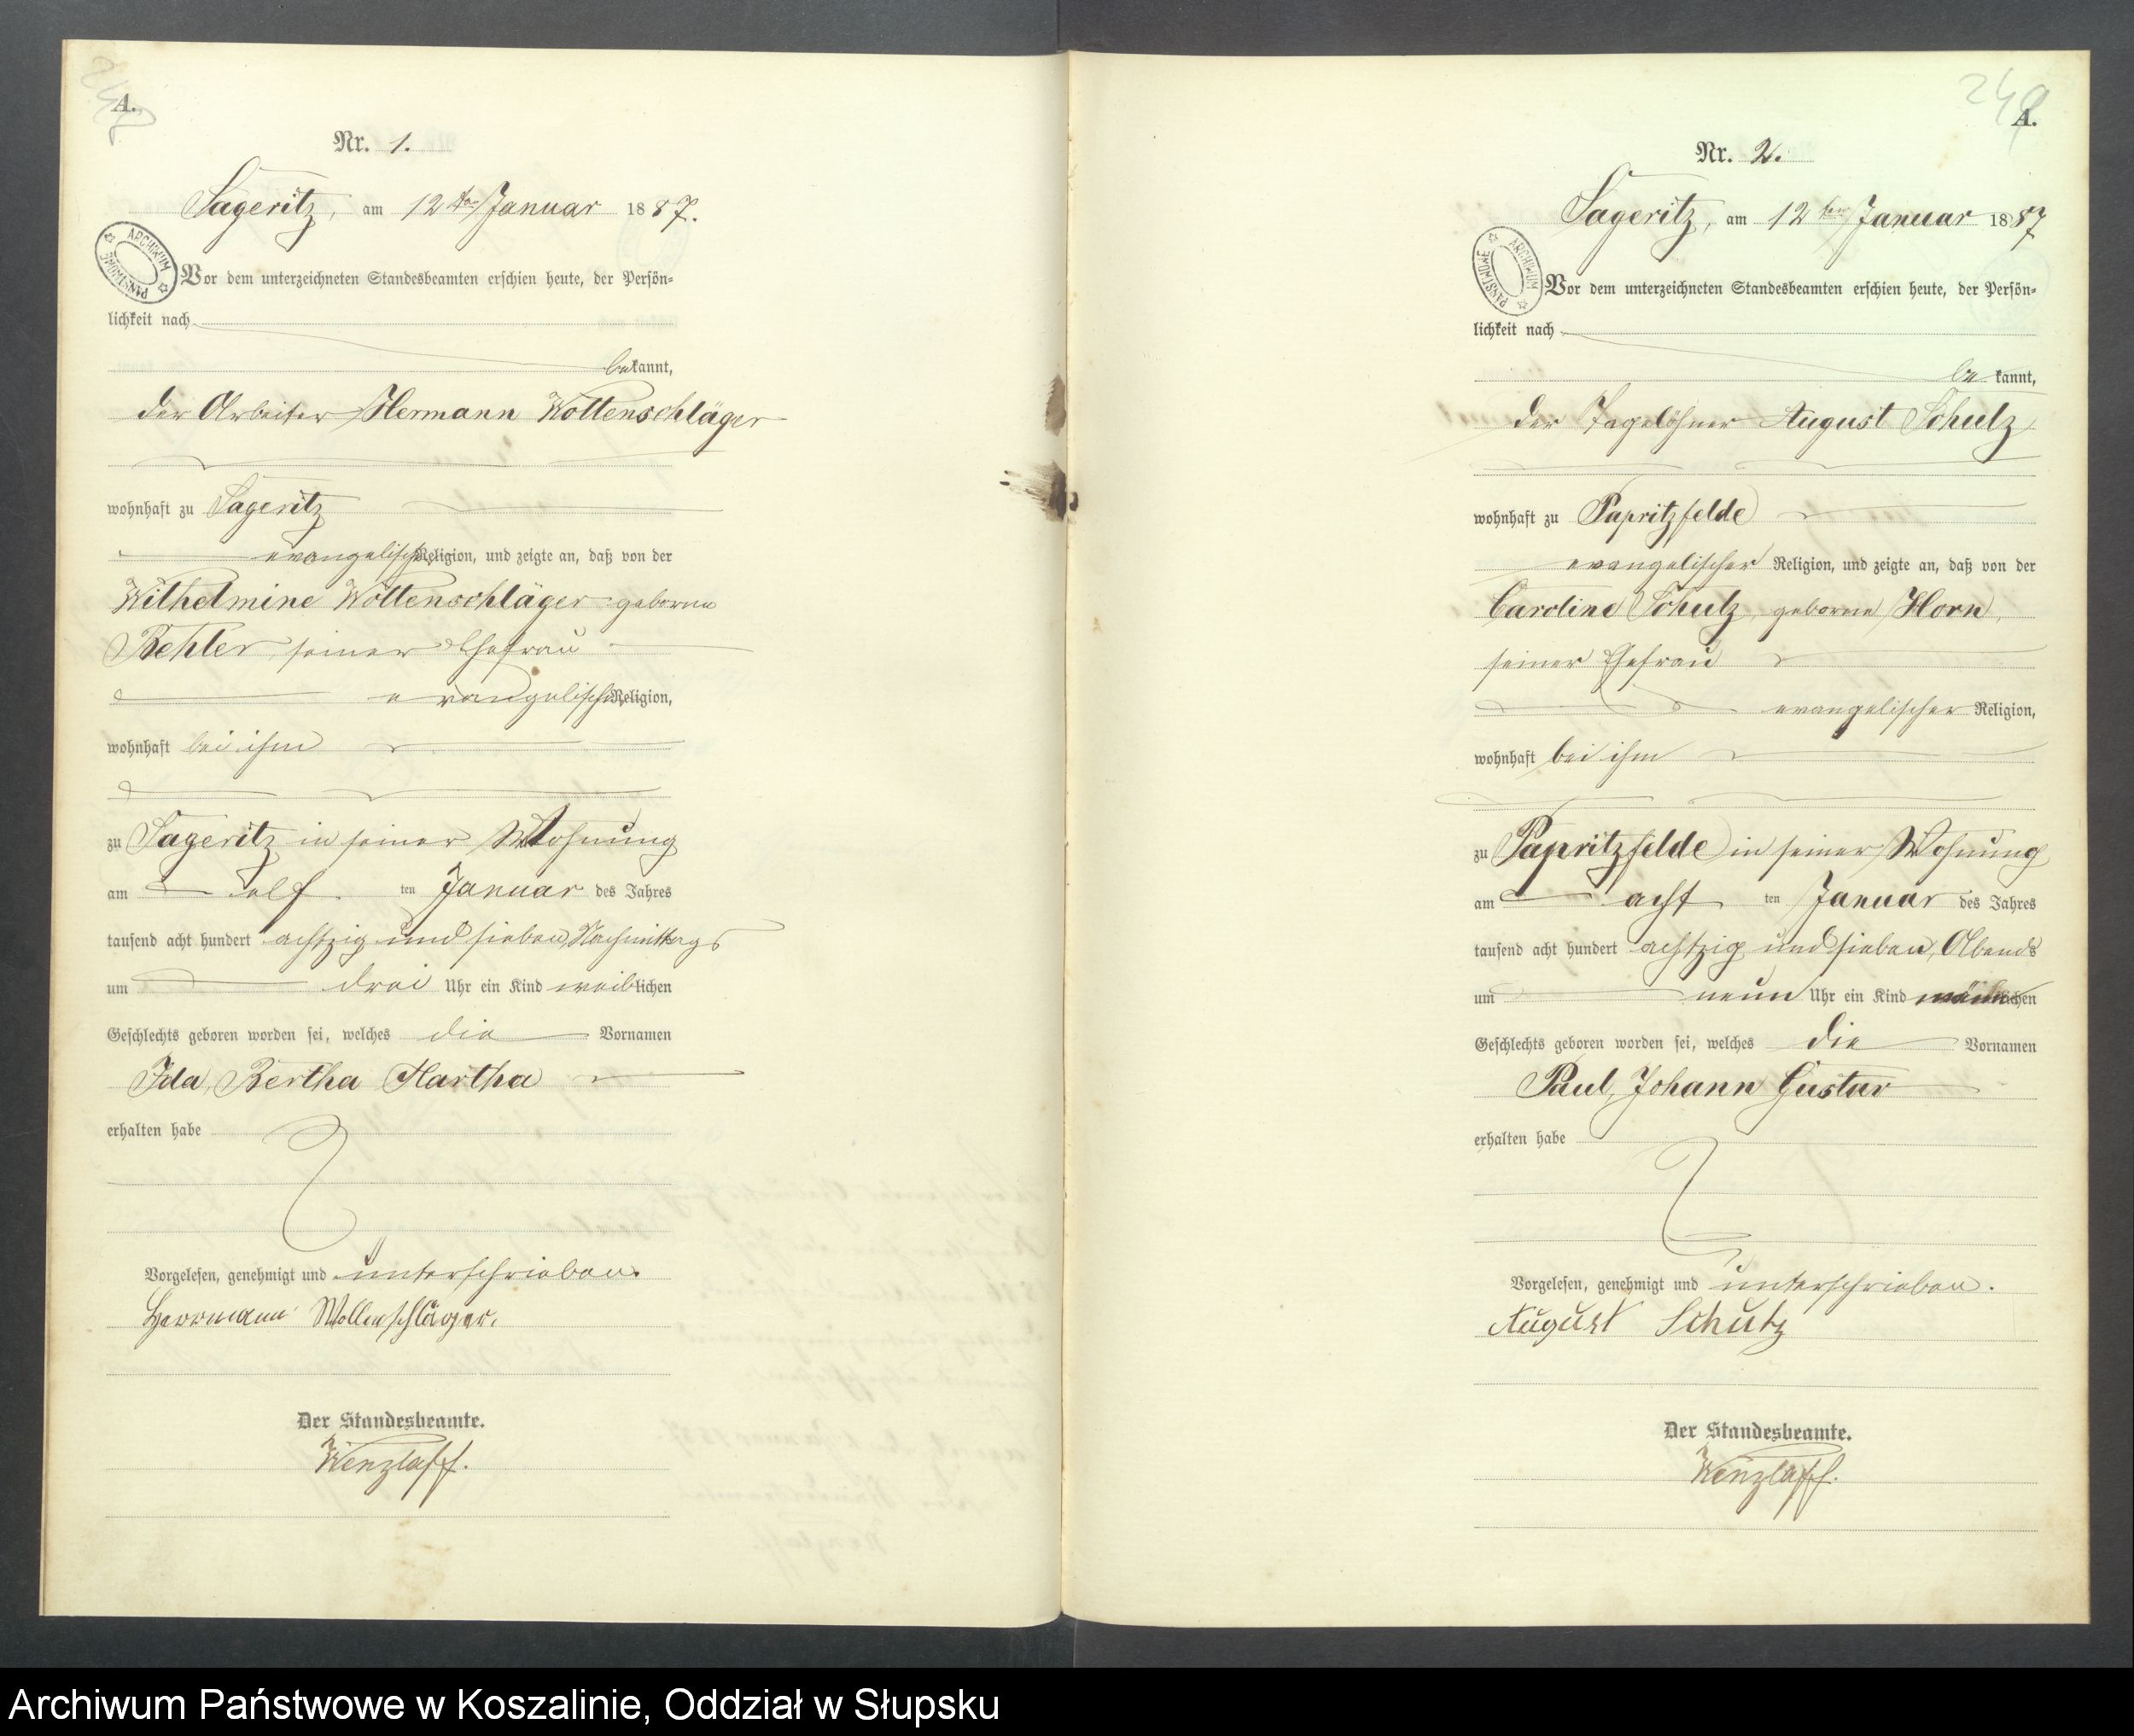 A.
Nr. 1.
Sageritz, am 12ten Januar 1887.
ARCHIWUM PAŃSTWOWE
Vor dem unterzeichneten Standesbeamten erschien heute, der Persön-
lichkeit nach
bekannt,
der Arbeiter Hermann Wollenschläger
wohnhaft zu Sageritz
evangelischer Religion, und zeigte an, daß von der
Wilhelmine Wollenschläger geborne
Behler, seiner Ehefrau
evangelischer Religion,
wohnhaft bei ihm
zu Sageritz in seiner Wohnung
am elf ten Januar des Jahres
tausend acht hundert achtzig und sieben, Nachmittags
um drei Uhr ein Kind weiblichen
Geschlechts geboren worden sei, welches die Vornamen
Ida, Bertha Martha
erhalten habe
Vorgelesen, genehmigt und unterschrieben.
Herrmann Wollenschläger.
Der Standesbeamte.
Wenzlaff.
249
A.
Nr. 2.
Sageritz, am 12ten Januar 1887
ARCHIWUM PAŃSTWOWE
Vor dem unterzeichneten Standesbeamten erschien heute, der Persön-
lichkeit nach
bekannt,
der Tagelöhner August Schulz
wohnhaft zu Papritzfelde
evangelischer Religion, und zeigte an, daß von der
Caroline Schulz, geborne Horn,
seiner Ehefrau
evangelischer Religion,
wohnhaft bei ihm
zu Papritzfelde in seiner Wohnung
am acht ten Januar des Jahres
tausend acht hundert achtzig und sieben, Abends
um neun Uhr ein Kind männlichen
Geschlechts geboren worden sei, welches die Vornamen
Paul, Johann Gustav
erhalten habe
Vorgelesen, genehmigt und unterschrieben.
August Schulz
Der Standesbeamte.
Wenzlaff.
Archiwum Państwowe w Koszalinie, Oddział w Słupsku